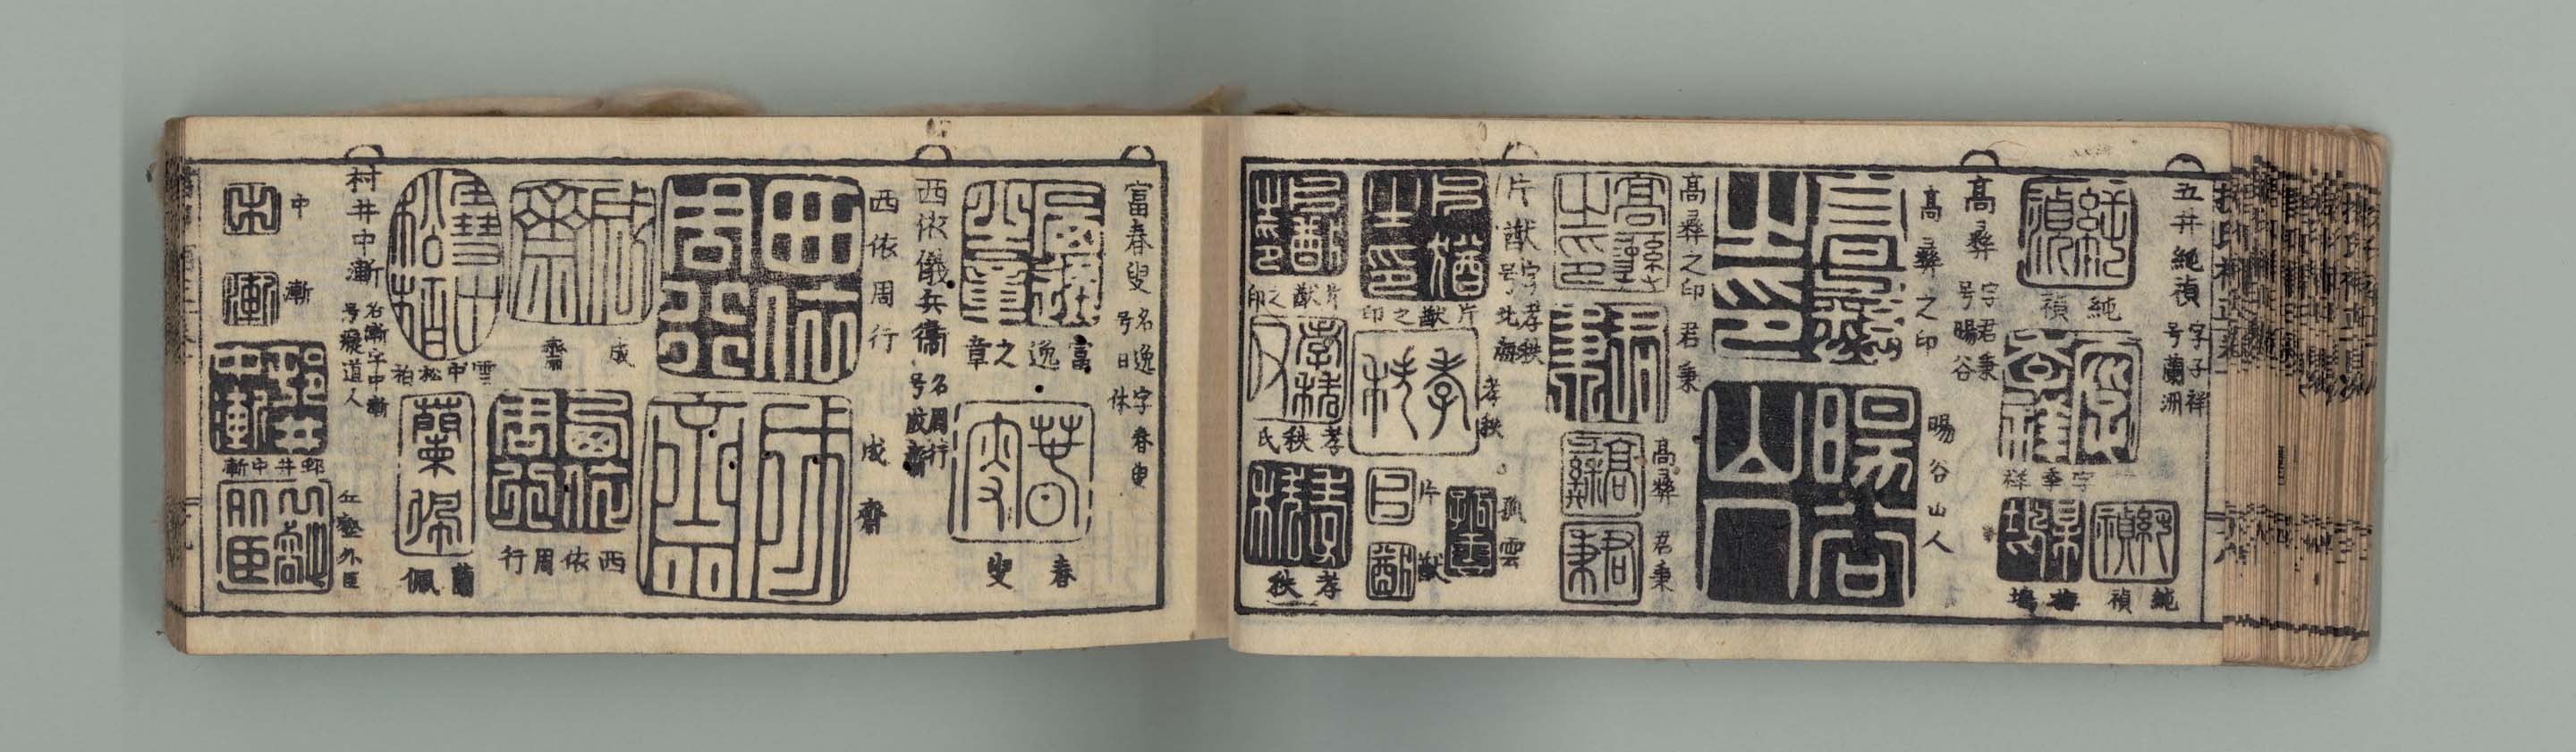 五井純禎 字子祥 号蘭洲
純禎
字季祥
純禎
梅塢
高彝 字君秉 号暘谷
高彝之印
暘谷山人
高彝之印
君秉
高彝
君秉
片猷 字孝秩 号北海
片猷之印
孝秩
孤雲
片猷
片猷之印
孝秩氏
孝秩
富春叟 名逸字春叟 号日休
富逸之章
春叟
西依儀兵衛 名周行 号成齋
西依周行
成齋
成齋
西依周行
雪中松柏
蘭佩
村井中漸 名漸字中漸 号癡道人
中漸
邨井中漸
丘壑外臣